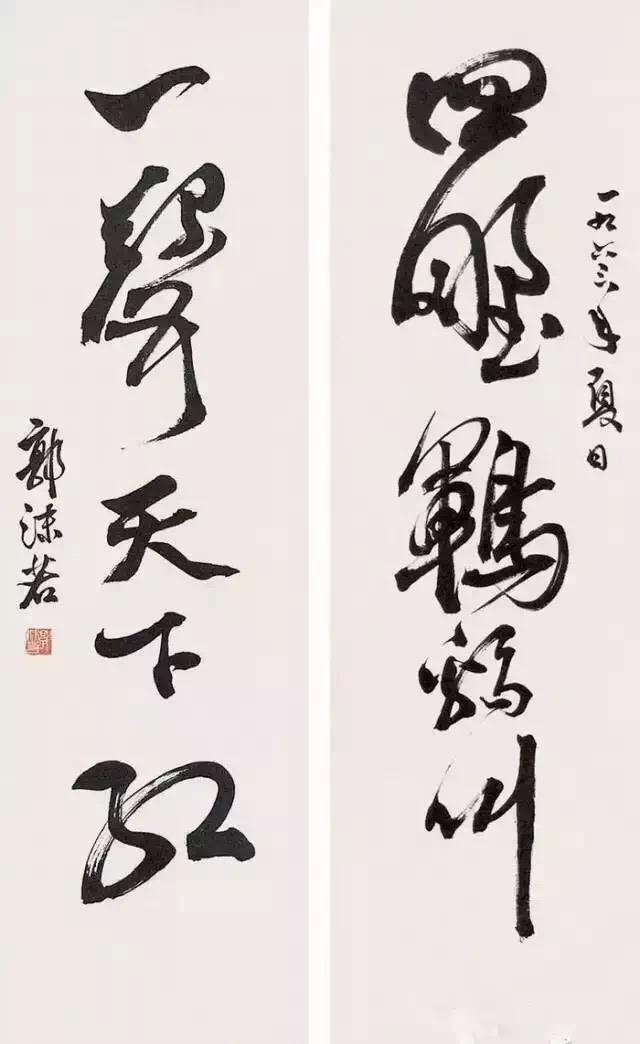 一九六三年夏日
四野鶤鷄叫
一聲天下紅
郭沫若